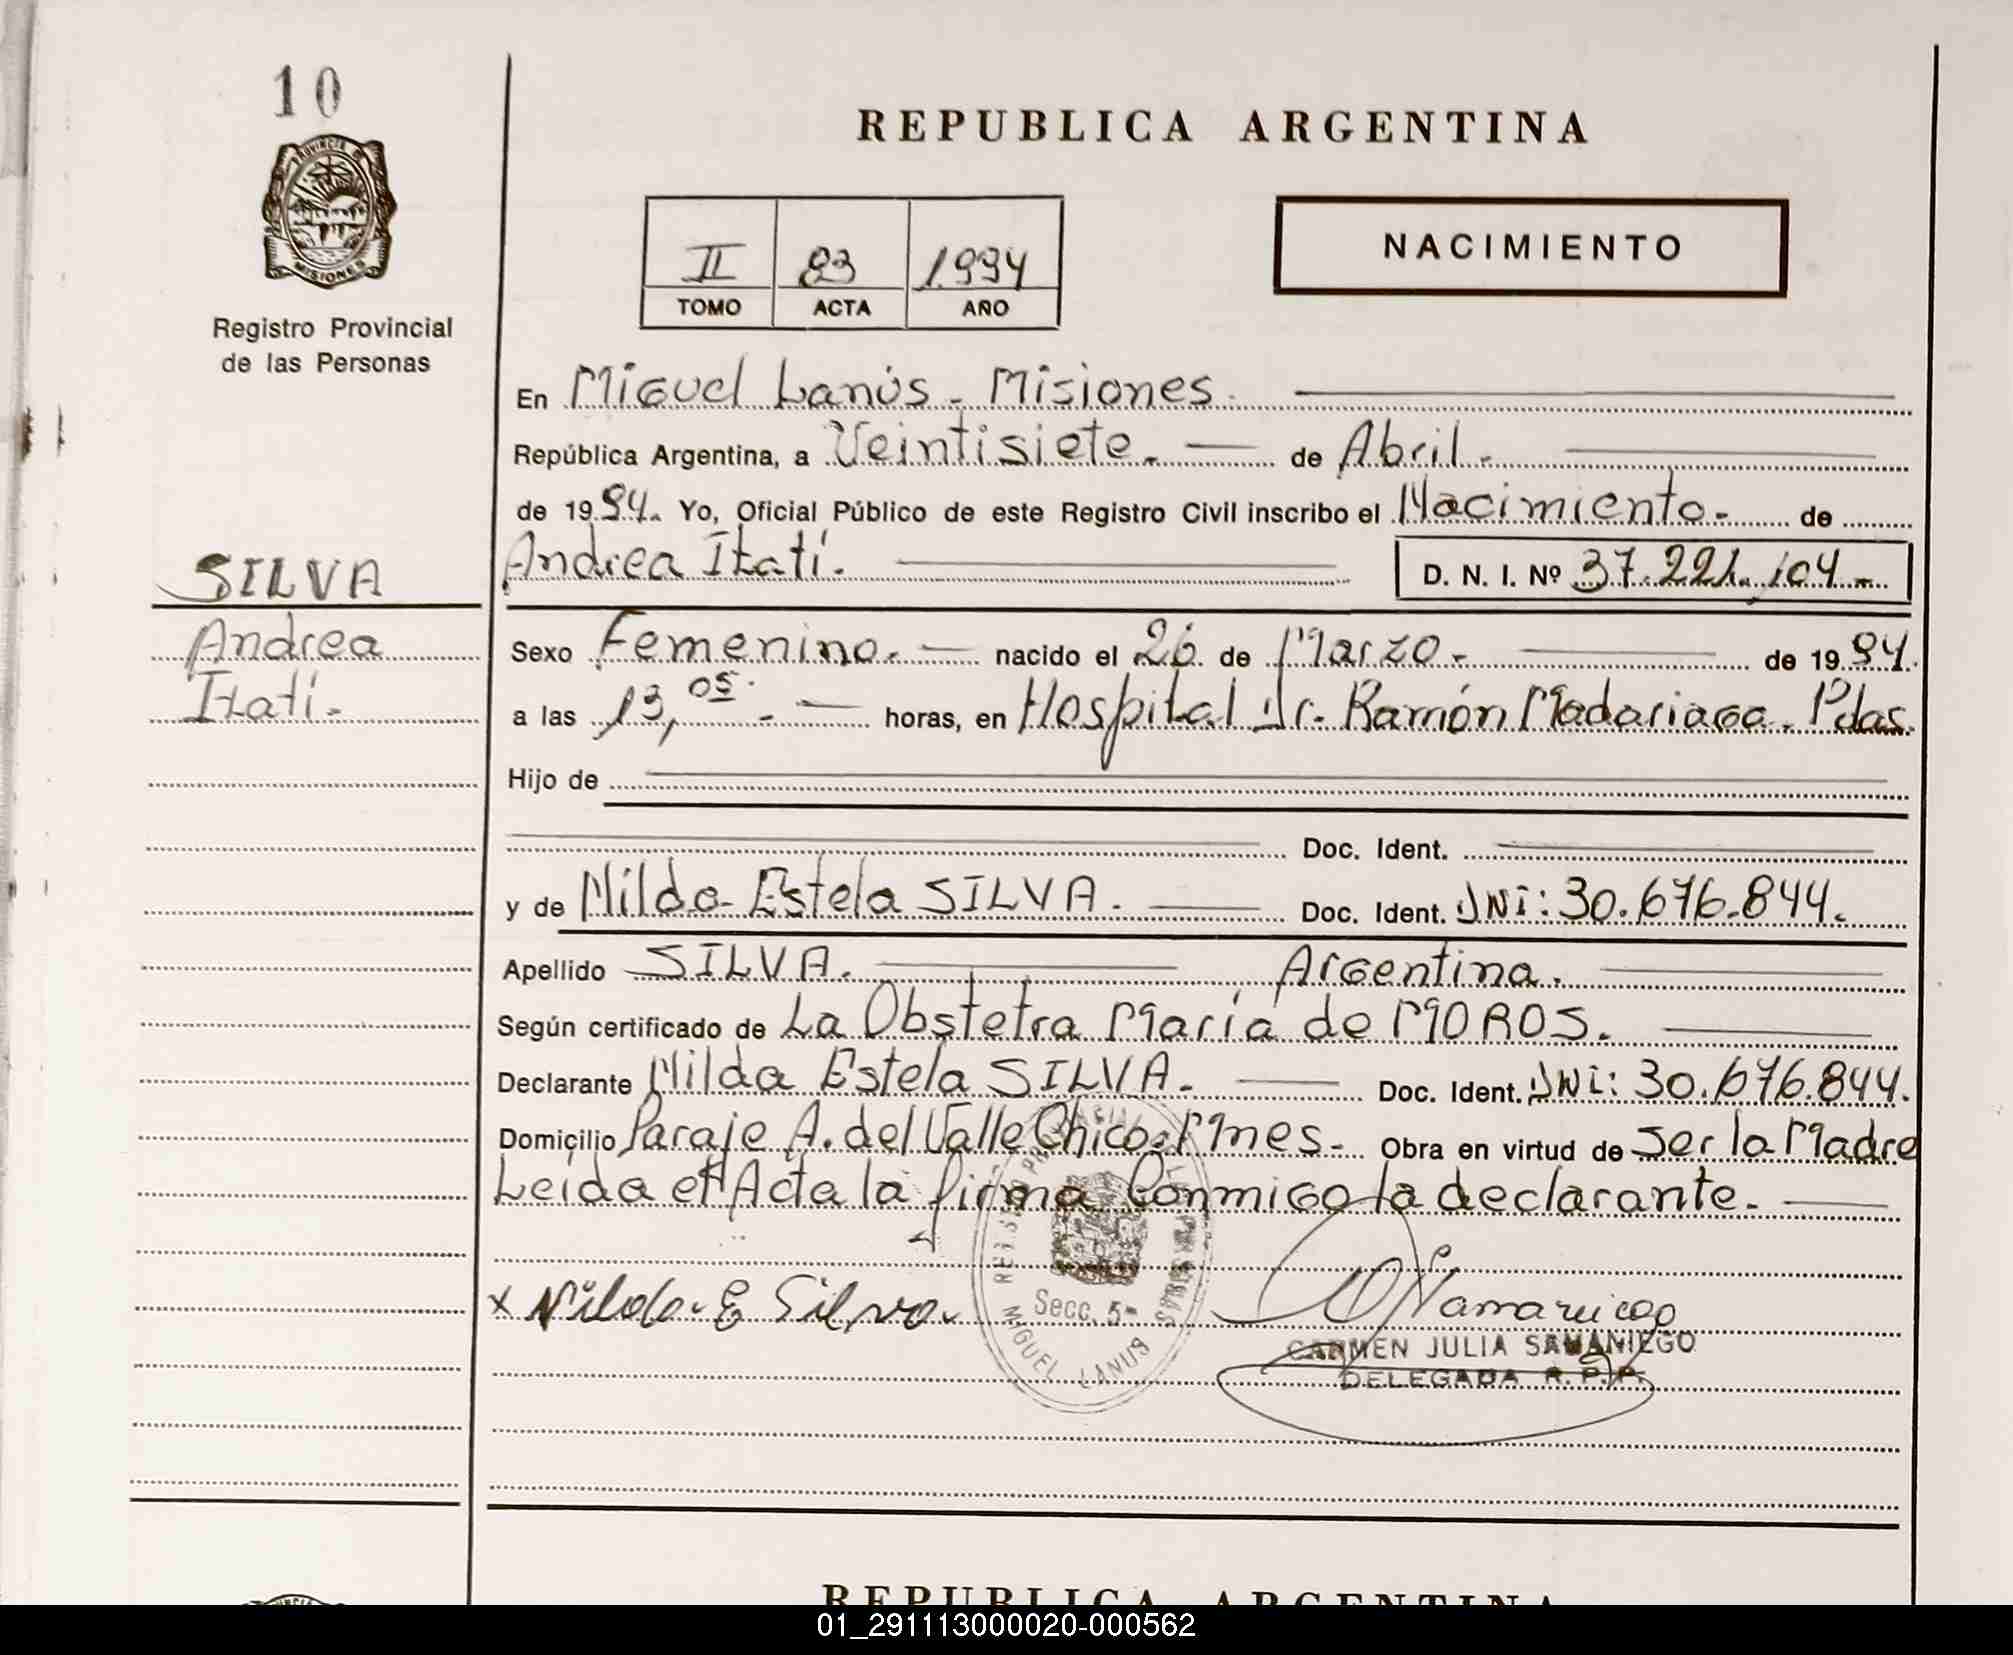 10
PROVINCIA DE
MISIONES
Registro Provincial
de las Personas
REPUBLICA ARGENTINA
II 83 1.994
TOMO ACTA AÑO
NACIMIENTO
En Miguel Lanús - Misiones.
República Argentina, a Veintisiete. de Abril.
de 19 94. Yo, Oficial Público de este Registro Civil inscribo el Nacimiento. de
Andrea Itatí. D. N. I. Nº 37.221.104.-
SILVA
Andrea
Itatí.-
Sexo Femenino. nacido el 26 de Marzo. de 19 94.
a las 13,05. horas, en Hospital Dr. Ramón Madariaga. Pdas.
Hijo de
Doc. Ident.
y de Nilda Estela SILVA. Doc. Ident. DNI: 30.676.844.
Apellido SILVA. Argentina.
Según certificado de La Obstetra María de MOROS.
Declarante Nilda Estela SILVA. Doc. Ident. DNI: 30.676.844.
Domicilio Paraje A. del Valle Chico. Mnes. Obra en virtud de Ser la Madre
Leída el Acta la firma Conmigo la declarante.
x Nilda E Silva.
Secc. 5ª
MIGUEL LANUS
CARMEN JULIA SAMANIEGO
DELEGADA R. P. P.
REPUBLICA ARGENTINA
01_291113000020-000562